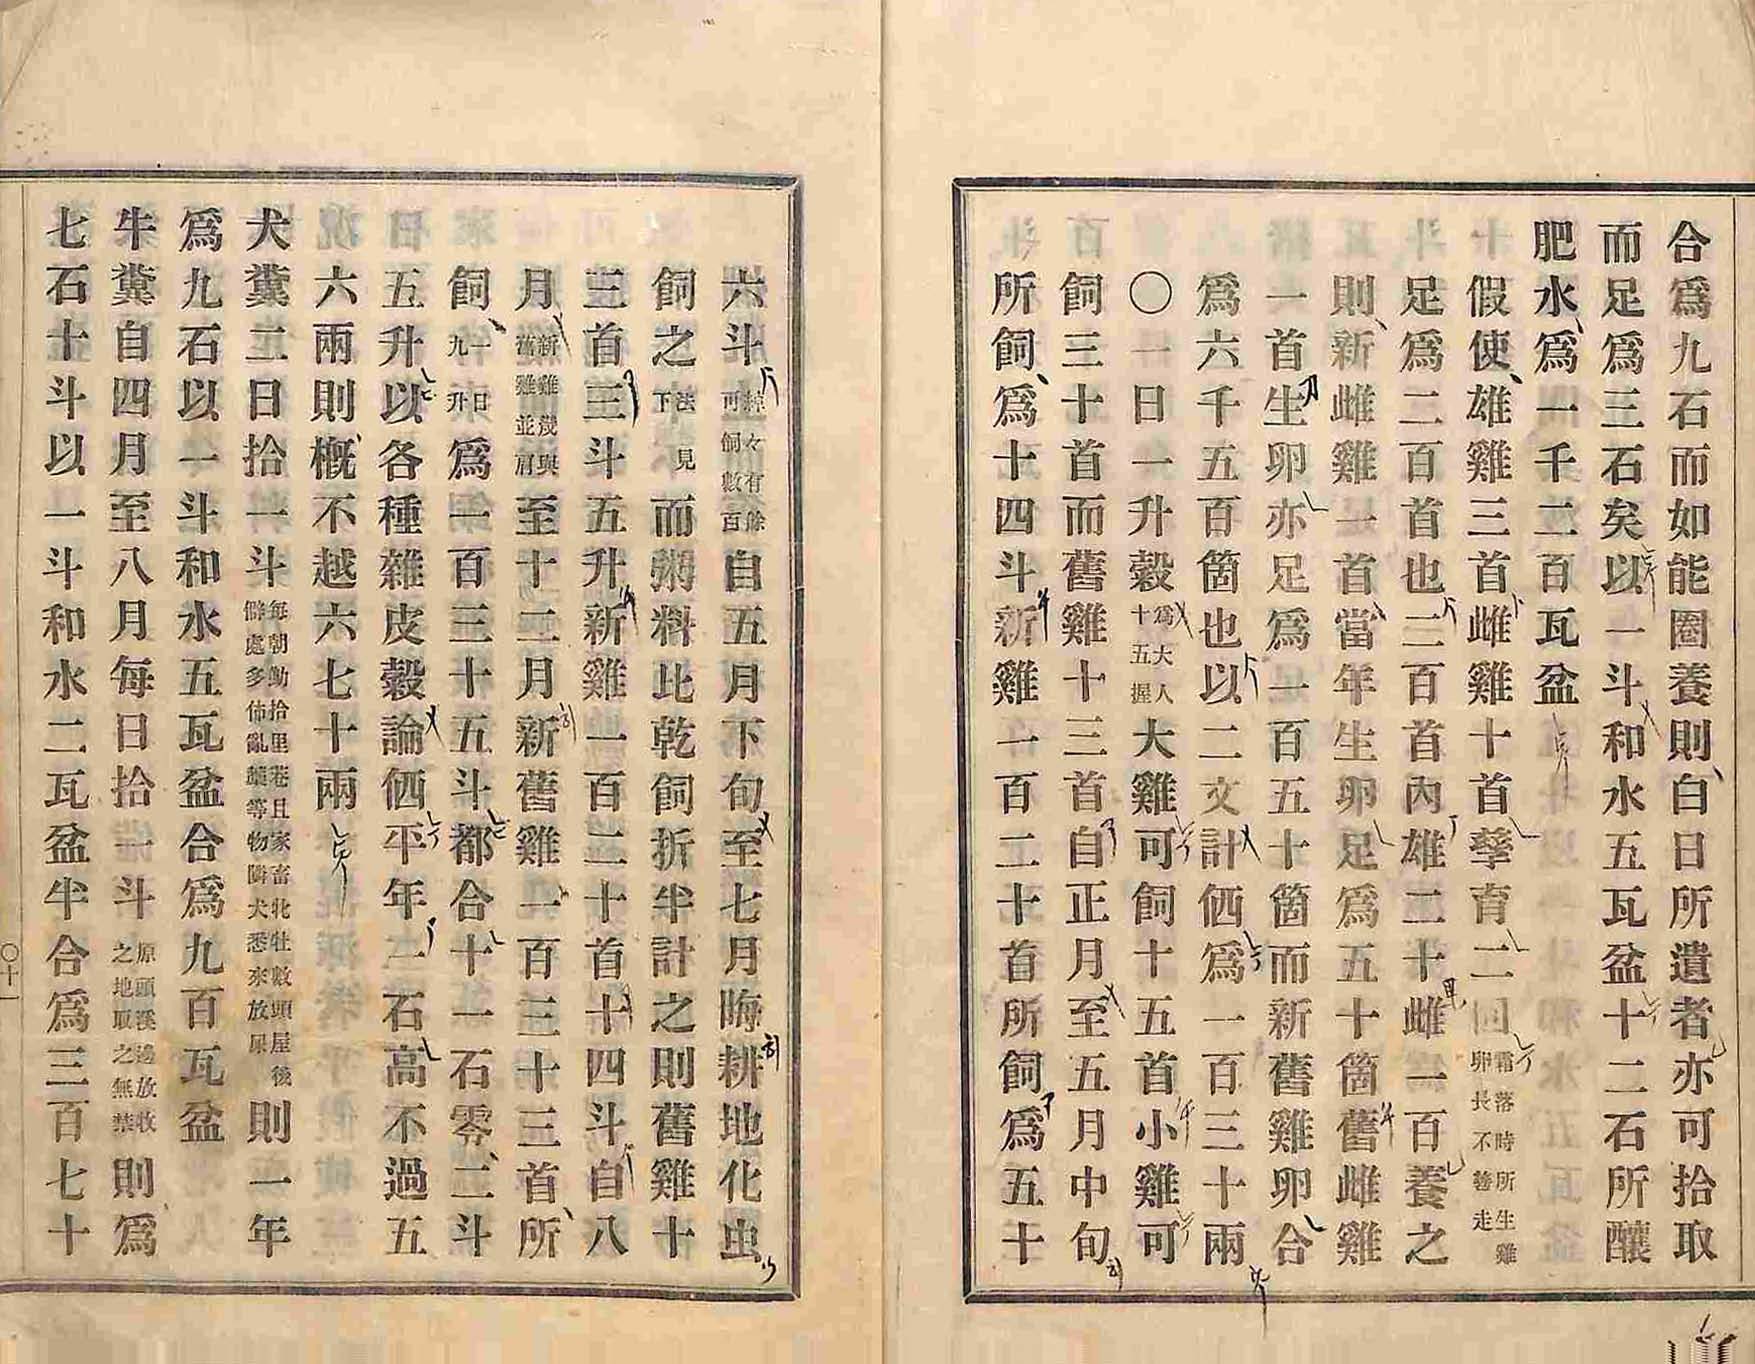 合爲九石而如能圈養則白日所遺者亦可拾取
而足爲三石矣以一斗和水五瓦盆十二石所釀
肥水爲一千二百瓦盆
假使雄雞三首雌雞十首孳育二回霜落時所生雞卵長不善走
足爲二百首也二百首內雄二十雌一百養之
則新雌雞一首當年生卵足爲五十箇舊雌雞
一首生卵亦足爲一百五十箇而新舊雞卵合
爲六千五百箇也以二文計価爲一百三十兩
〇一日一升穀爲大人十五握大雞可飼十五首小雞可
飼三十首而舊雞十三首自正月至五月中旬
所飼爲十四斗新雞一百二十首所飼爲五十
六斗有餘可飼數百自五月下旬至七月晦耕地化虫
飼之法見下而粥料比乾飼折半計之則舊雞十
三首三斗五升新雞一百二十首十四斗自八
月新雞幾與舊雞並肩至十二月新舊雞一百三十三首所
飼一日九升爲一百三十五斗都合十一石零二斗
五升以各種雜皮穀論価平年二石高不過五
六兩則概不越六七十兩
犬糞二日拾一斗每朝勤拾里巷且家畜牝牡數頭屋後僻處多佈亂等物隣犬悉來放屎則一年
爲九石以一斗和水五瓦盆合爲九百瓦盆
牛糞自四月至八月每日拾一斗原頭溪邊放牧之地取之無禁則爲
七石十斗以一斗和水二瓦盆半合爲三百七十
〇十一